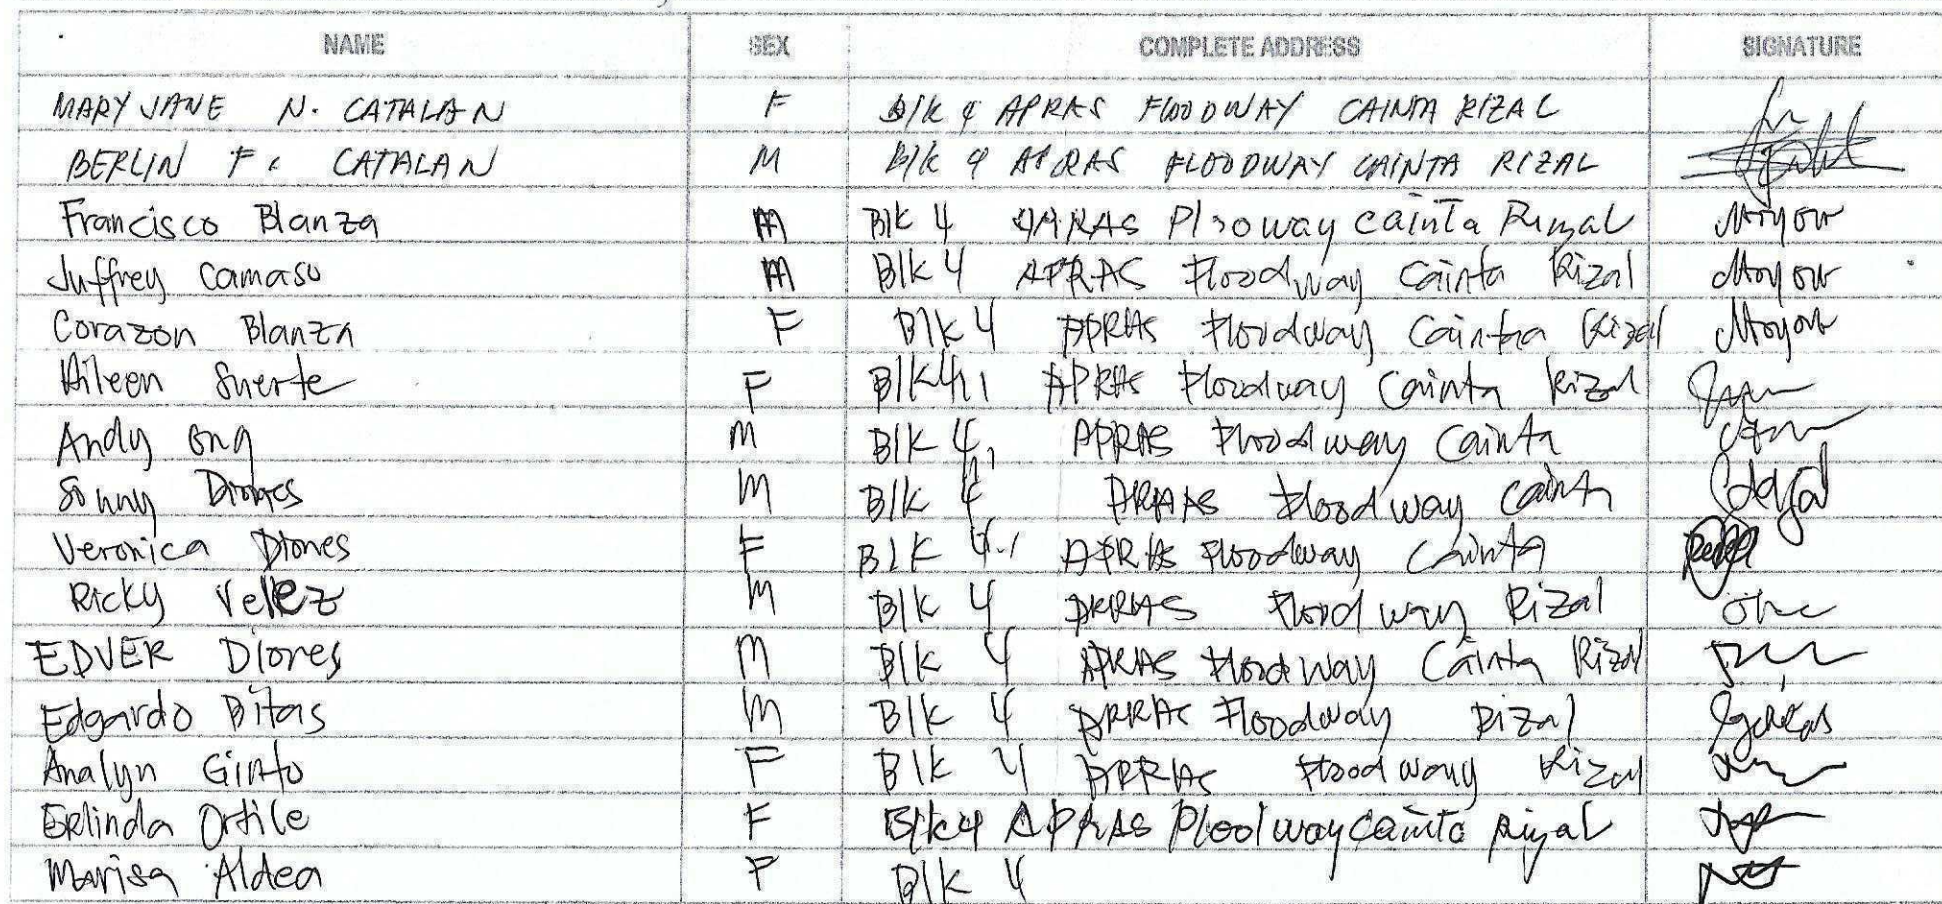 NAME SEX COMPLETE ADDRESS SIGNATURE
MARY JANE N. CATALAN F Blk 4 APRAS FLOODWAY CAINTA RIZAL
BERLIN F. CATALAN M Blk 4 APRAS FLOODWAY CAINTA RIZAL
Francisco Blanza M Blk 4 APRAS Floodway Cainta Rizal
Juffrey Camaso M Blk 4 APRAS Floodway Cainta Rizal
Corazon Blanza F Blk 4 APRAS Floodway Cainta Rizal
Aileen Suerte F Blk 4, APRAS Floodway Cainta Rizal
Andy Ong M Blk 4, APRAS Floodway Cainta
Sonny Diones M Blk 4 APRAS Floodway Cainta
Veronica Diones F Blk 4 APRAS Floodway Cainta
Ricky Velez M Blk 4 APRAS Floodway Rizal
EDVER Diones M Blk 4 APRAS Floodway Cainta Rizal
Edgardo Bitas M Blk 4 APRAS Floodway Rizal
Analyn Ginto F Blk 4 APRAS Floodway Rizal
Erlinda Ortile F Blk 4 APRAS Floodway Cainta Rizal
Marisa Aldea F Blk 4